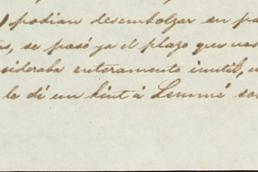 podian desembolzar en
se pasó ya el plazo que
enteramente inutil,
le di un hint á Lemmé